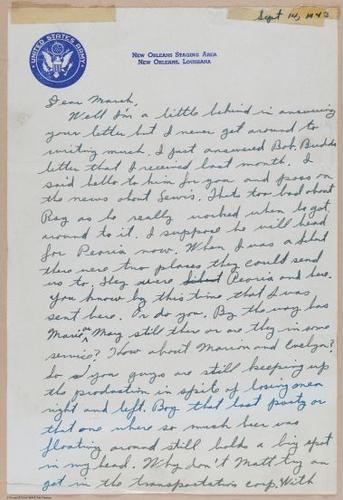 Sept 14, 1943
UNITED STATES ARMY
NEW ORLEANS STAGING AREA
NEW ORLEANS, LOUISIANA
Dear March,
Well I'm a little behind in answering
your letter but I never get around to
writing much. I just answered Bob Budds
letter that I received last month. I
said hello to him for you and pass on
the news about Lewis. Thats too bad about
Ray as he really worked when he got
around to it. I suppose he will head
for Peoria now. When I was a
there were two places they could send
us to. They were Peoria and here.
You know by this time that I was
sent here. Or do you. By the way has
Marie or May still there or are they in some
service? How about Marion and Evelyn?
So you guys are still keeping up
the production in spite of losing men
right and left. Boy that last party or
that one where so much beer was
floating around still holds a big spot
in my head. Why don't Matt try an
get in the transportation corp. With